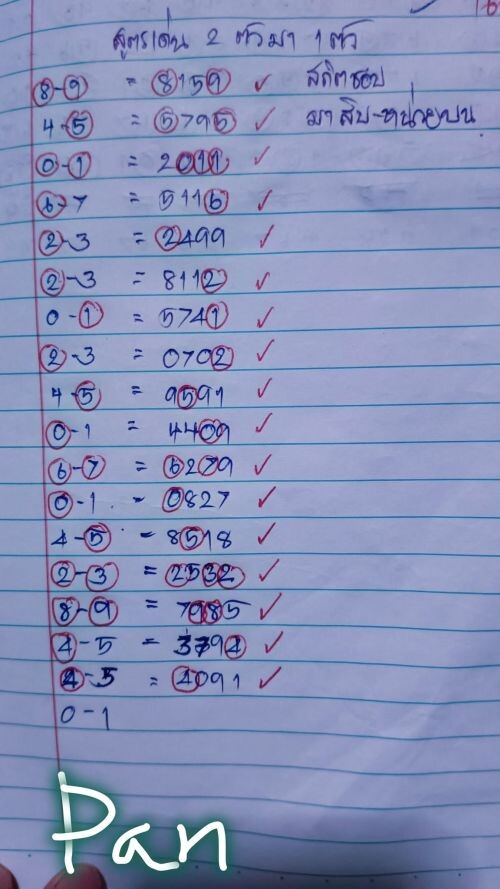 สูตรเด่น 2 ตัวมา 1 ตัว
8-9 = 8159 ✓ สถิตชอบ
4-5 = 5795 ✓ มาสิบ-หน่วยบน
0-1 = 2011 ✓
6-7 = 5116 ✓
2-3 = 2499 ✓
2-3 = 8112 ✓
0-1 = 5741 ✓
2-3 = 0702 ✓
4-5 = 9591 ✓
0-1 = 4409 ✓
6-7 = 6279 ✓
0-1 = 0827 ✓
4-5 = 8518 ✓
2-3 = 2532 ✓
8-9 = 7985 ✓
4-5 = 3794 ✓
4-5 = 4091 ✓
0-1
Pan